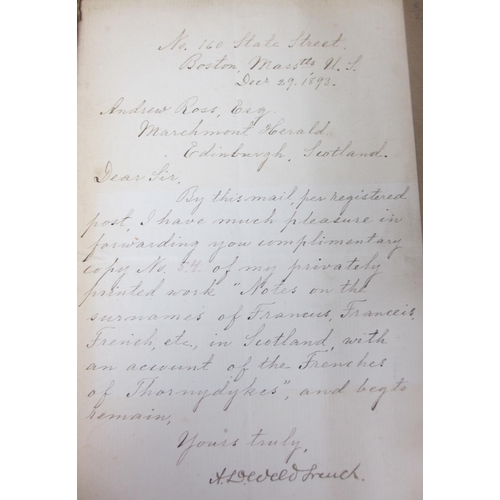 No. 160 State Street.
Boston, Masstts U. S.
Decr 29. 1893.
Andrew Ross, Esq.
Marchmont Herald
Edinburgh, Scotland.
Dear Sir,
By this mail, per registered
post, I have much pleasure in
forwarding you complimentary
copy No. 54. of my privately
printed work "Notes on the
surnames of Francus, Franceis,
French, etc, in Scotland, with
an account of the Frenches
of Thornydykes", and beg to
remain,
Yours truly,
A. D. Weld French.